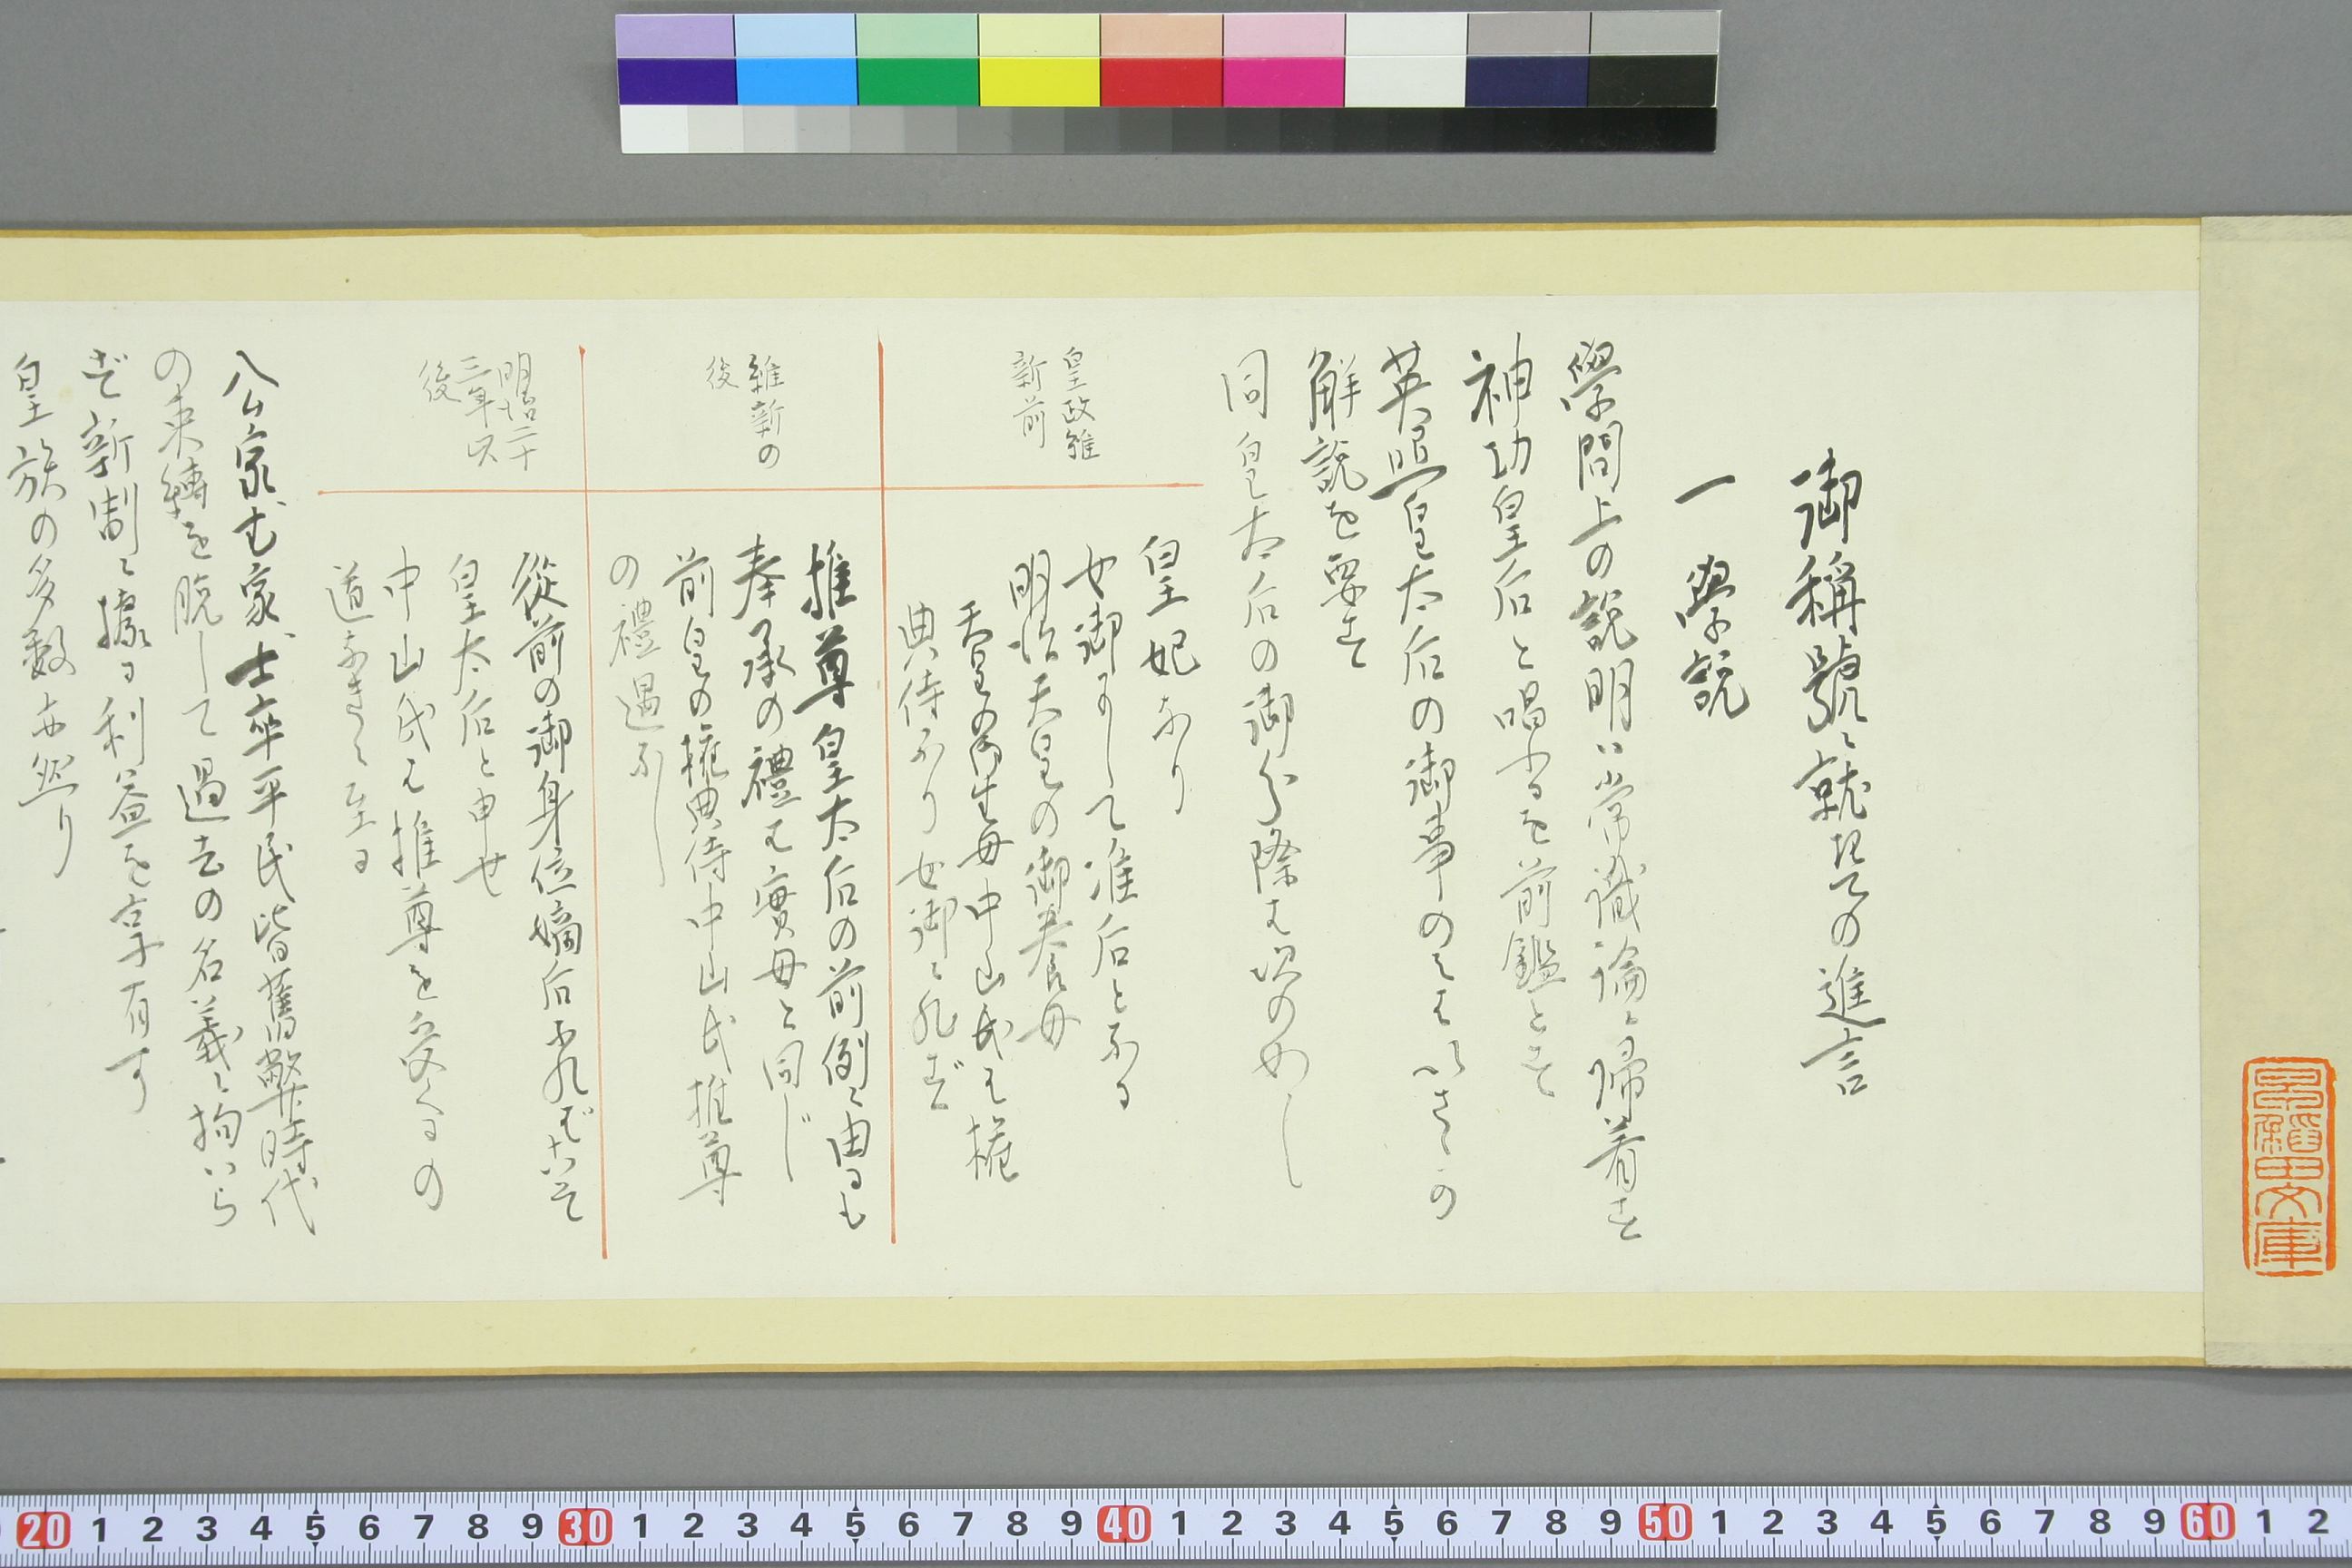 御稱號に就きての進言
一 學説
學問上の説明は常識論に歸着す
神功皇后と唱ふるを前鑑とす
英照皇太后の御事のみは いさゝかの
解説を要す
同皇太后の御分際は次のめし
皇政維
新前
皇妃なり
女御にして准后となる
明治天皇の御養母
天皇の御生母中山氏は権
典侍なり女御に非ず
維新の
後
推尊皇太后の前例に由るも
奉承の禮は實母と同じ
前皇の権典侍中山氏推尊
の禮遇なし
明治二十
三年以
後
從前の御身位嫡后に非ざれば
皇太后と申せ
中山氏は推尊を受くるの
道なきに至る
公家、武家、士卒平民皆舊弊時代
の束縛を脱して過去の名義に拘はら
ず新制に據る利益を享有す
皇族の多數亦然り
20 1 2 3 4 5 6 7 8 9 30 1 2 3 4 5 6 7 8 9 40 1 2 3 4 5 6 7 8 9 50 1 2 3 4 5 6 7 8 9 60 1 2